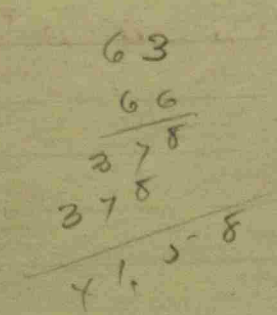 63
66
378
378
41.58